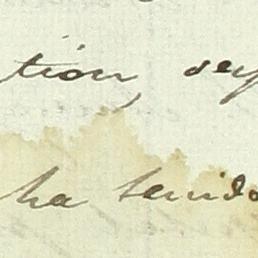 tion, sey
ha tenido